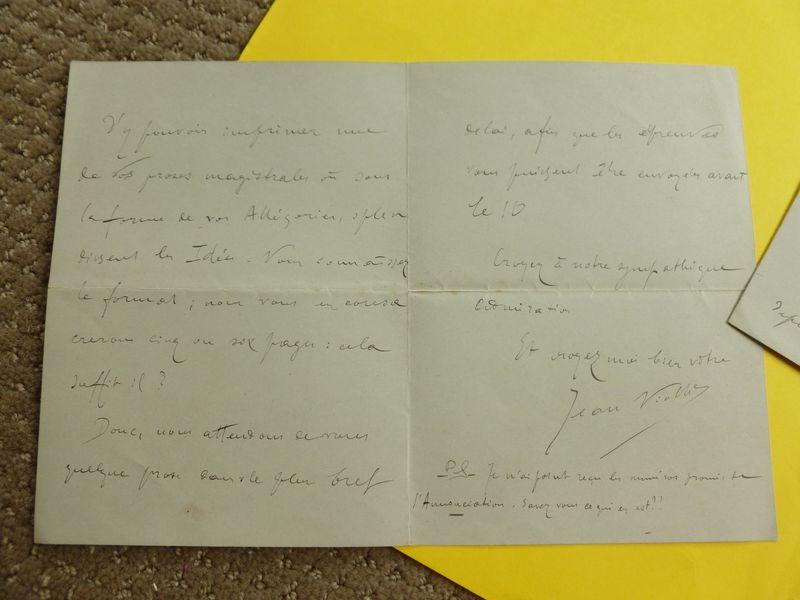 d'y pouvoir imprimer une
de vos proses magistrales où sous
la forme de vos Allégories, splen
dissent les Idées. Vous connaissez
le format ; nous vous en consa
crerons cinq ou six pages : cela
suffit il ?
Donc, nous attendons de vous
quelque prose dans le plus bref
delai, afin que les épreuves
vous puissent être envoyées avant
le 10
Croyez à notre sympathique
admiration
Et croyez moi bien vôtre
Jean Viollis
P.S. Je n'ai point reçu les numéros promis de
l'Annonciation. Savez vous ce qui en est !!